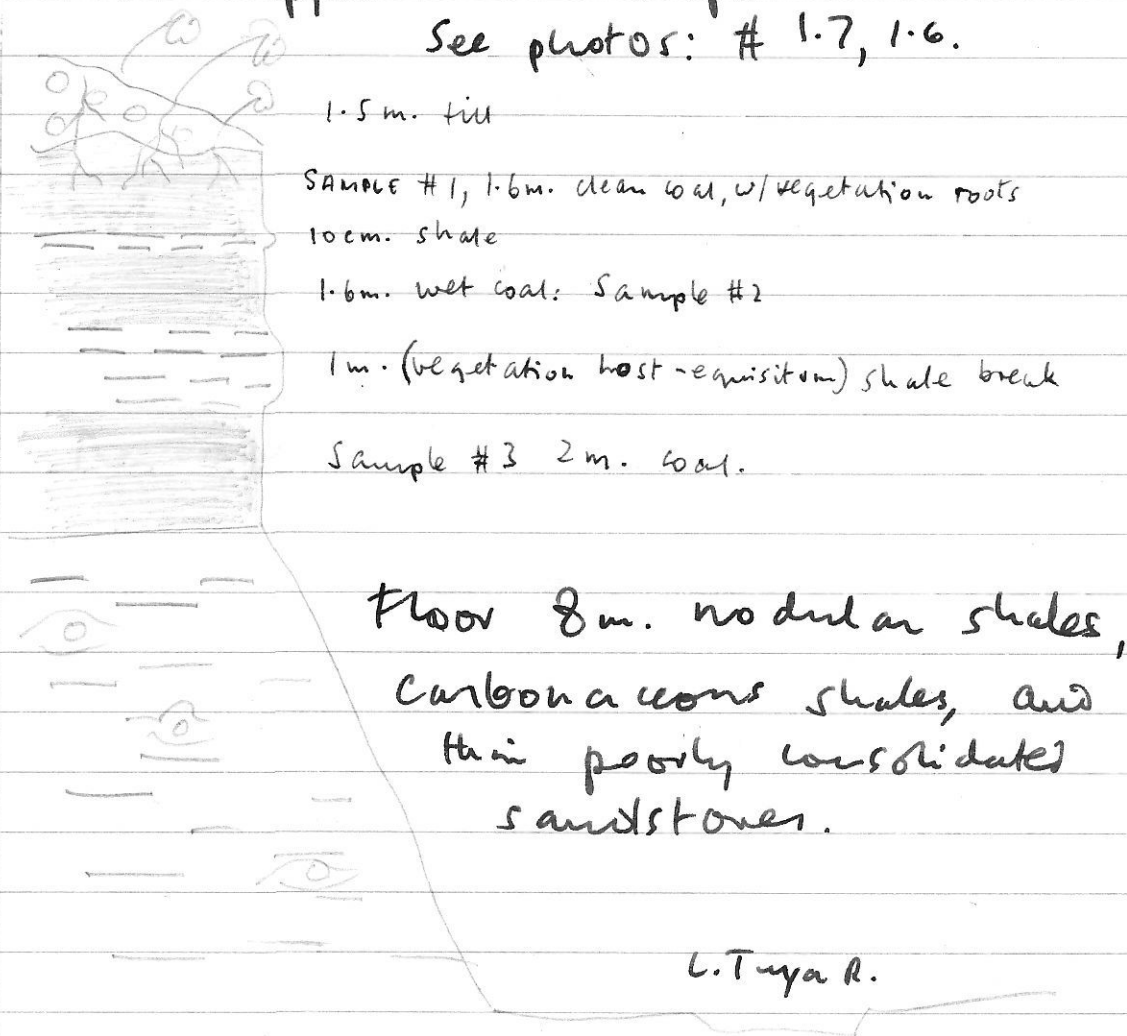 See photos: # 1.7, 1.6.
1.5 m. till
SAMPLE #1, 1.6m. clean coal, w/ vegetation roots
10 cm. shale
1.6m. wet coal: Sample #2
1m. (vegetation host-equisitum) shale break
Sample #3 2m. coal.
Floor 8m. nodular shales,
carbonaceous shales, and
thin poorly consolidated
sandstones.
L. Tuya R.